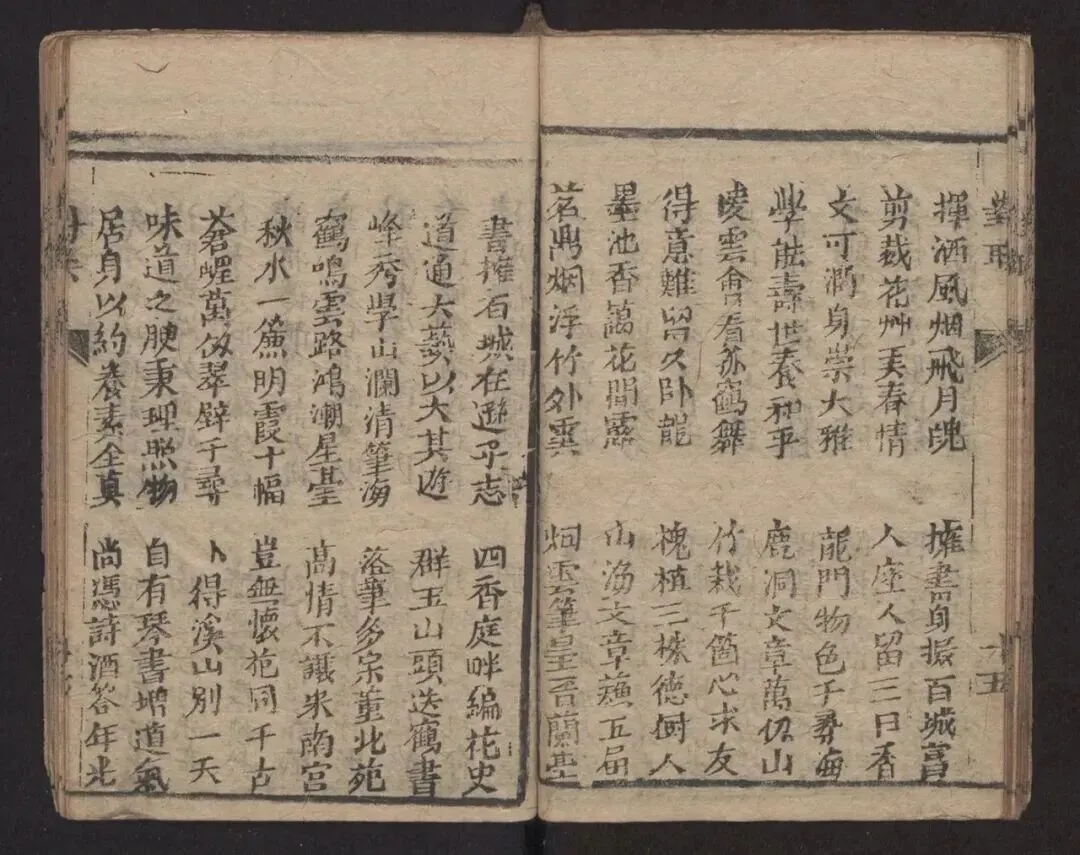 對聯
十五
揮洒風烟飛月魄
擁書身擬百城富
剪裁花艸美春情
人座人留三日香
文可潤身崇大雅
龍門物色千尋海
學能壽世養和平
鹿洞文章萬仞山
崚雲會看亦鶴舞
竹栽千箇心求友
得意難留久卧龍
槐植三株德樹人
墨池香藹花間露
山海文章蘓五局
茗鼎烟浮竹外雲
烟雲筆皇晋蘭臺
書擁百城在遜乎志
四香庭畔編花史
道通大藝以大其遊
群玉山頭送鶴書
峰秀學山瀾清筆海
落筆多宗董北苑
鶴鳴雲路鴻潮星臺
高情不讓米南宮
秋水一簾明霞十幅
豈無懷抱同千古
蒼萬仭翠壁千尋
卜得溪山別一天
味道之腴秉理照物
自有琴書增道氣
居身以約養素全真
尚憑詩酒答年光